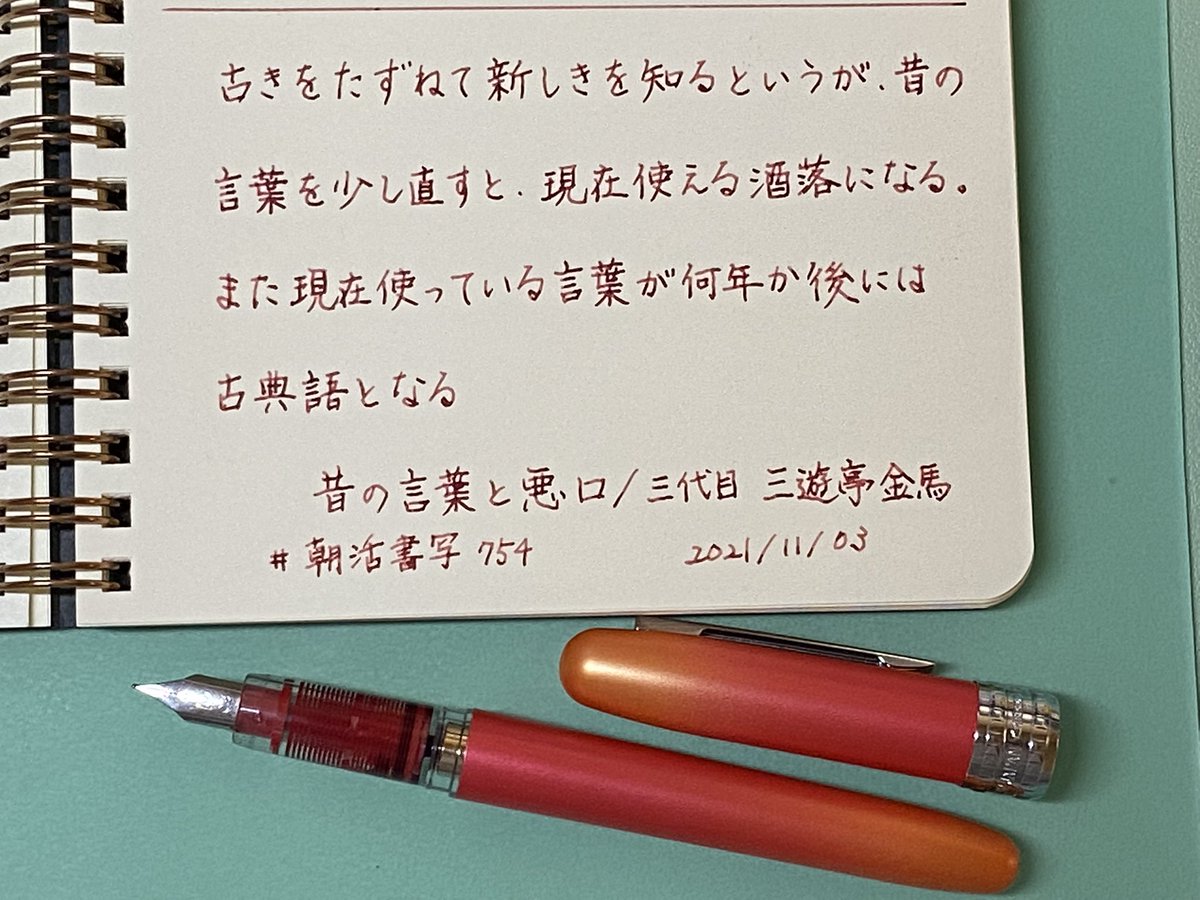 古きをたずねて新しきを知るというが、昔の
言葉を少し直すと、現在使える洒落になる。
また現在使っている言葉が何年か後には
古典語となる
昔の言葉と悪口/三代目 三遊亭金馬
#朝活書写 754 2021/11/03